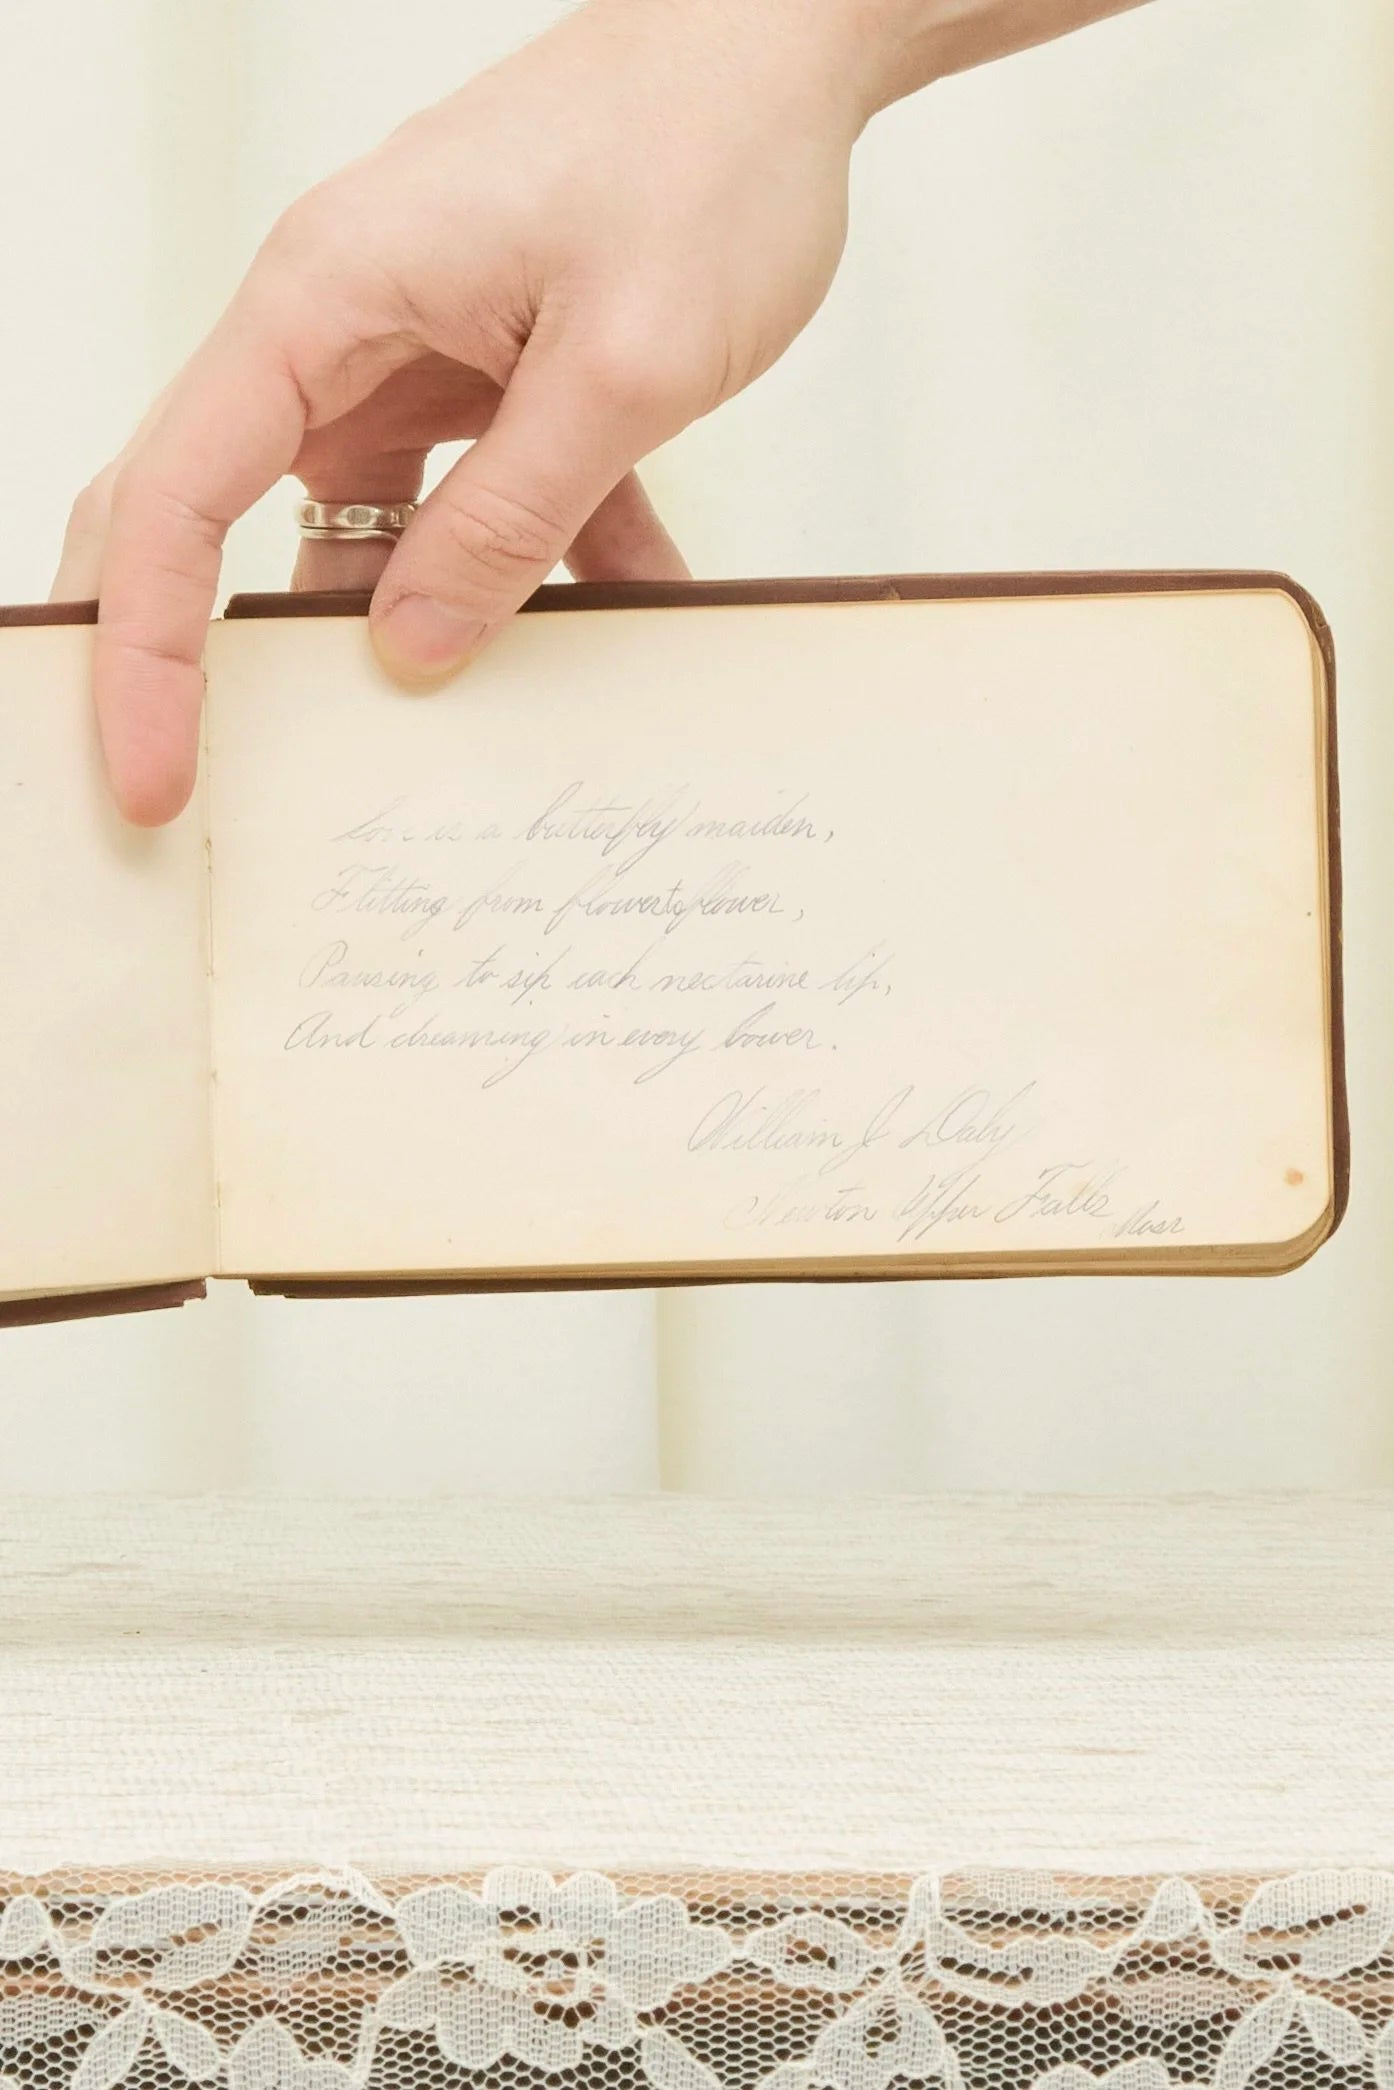 Love is a butterfly maiden,
Flitting from flower to flower,
Pausing to sip each nectarine lip,
And dreaming in every bower.
William J Daly
Newton Upper Falls Mass